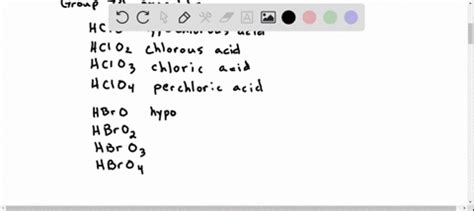 Group 7A
HClO hypochlorous acid
HClO2 chlorous acid
HClO3 chloric acid
HClO4 perchloric acid
HBrO hypo
HBrO2
HBrO3
HBrO4